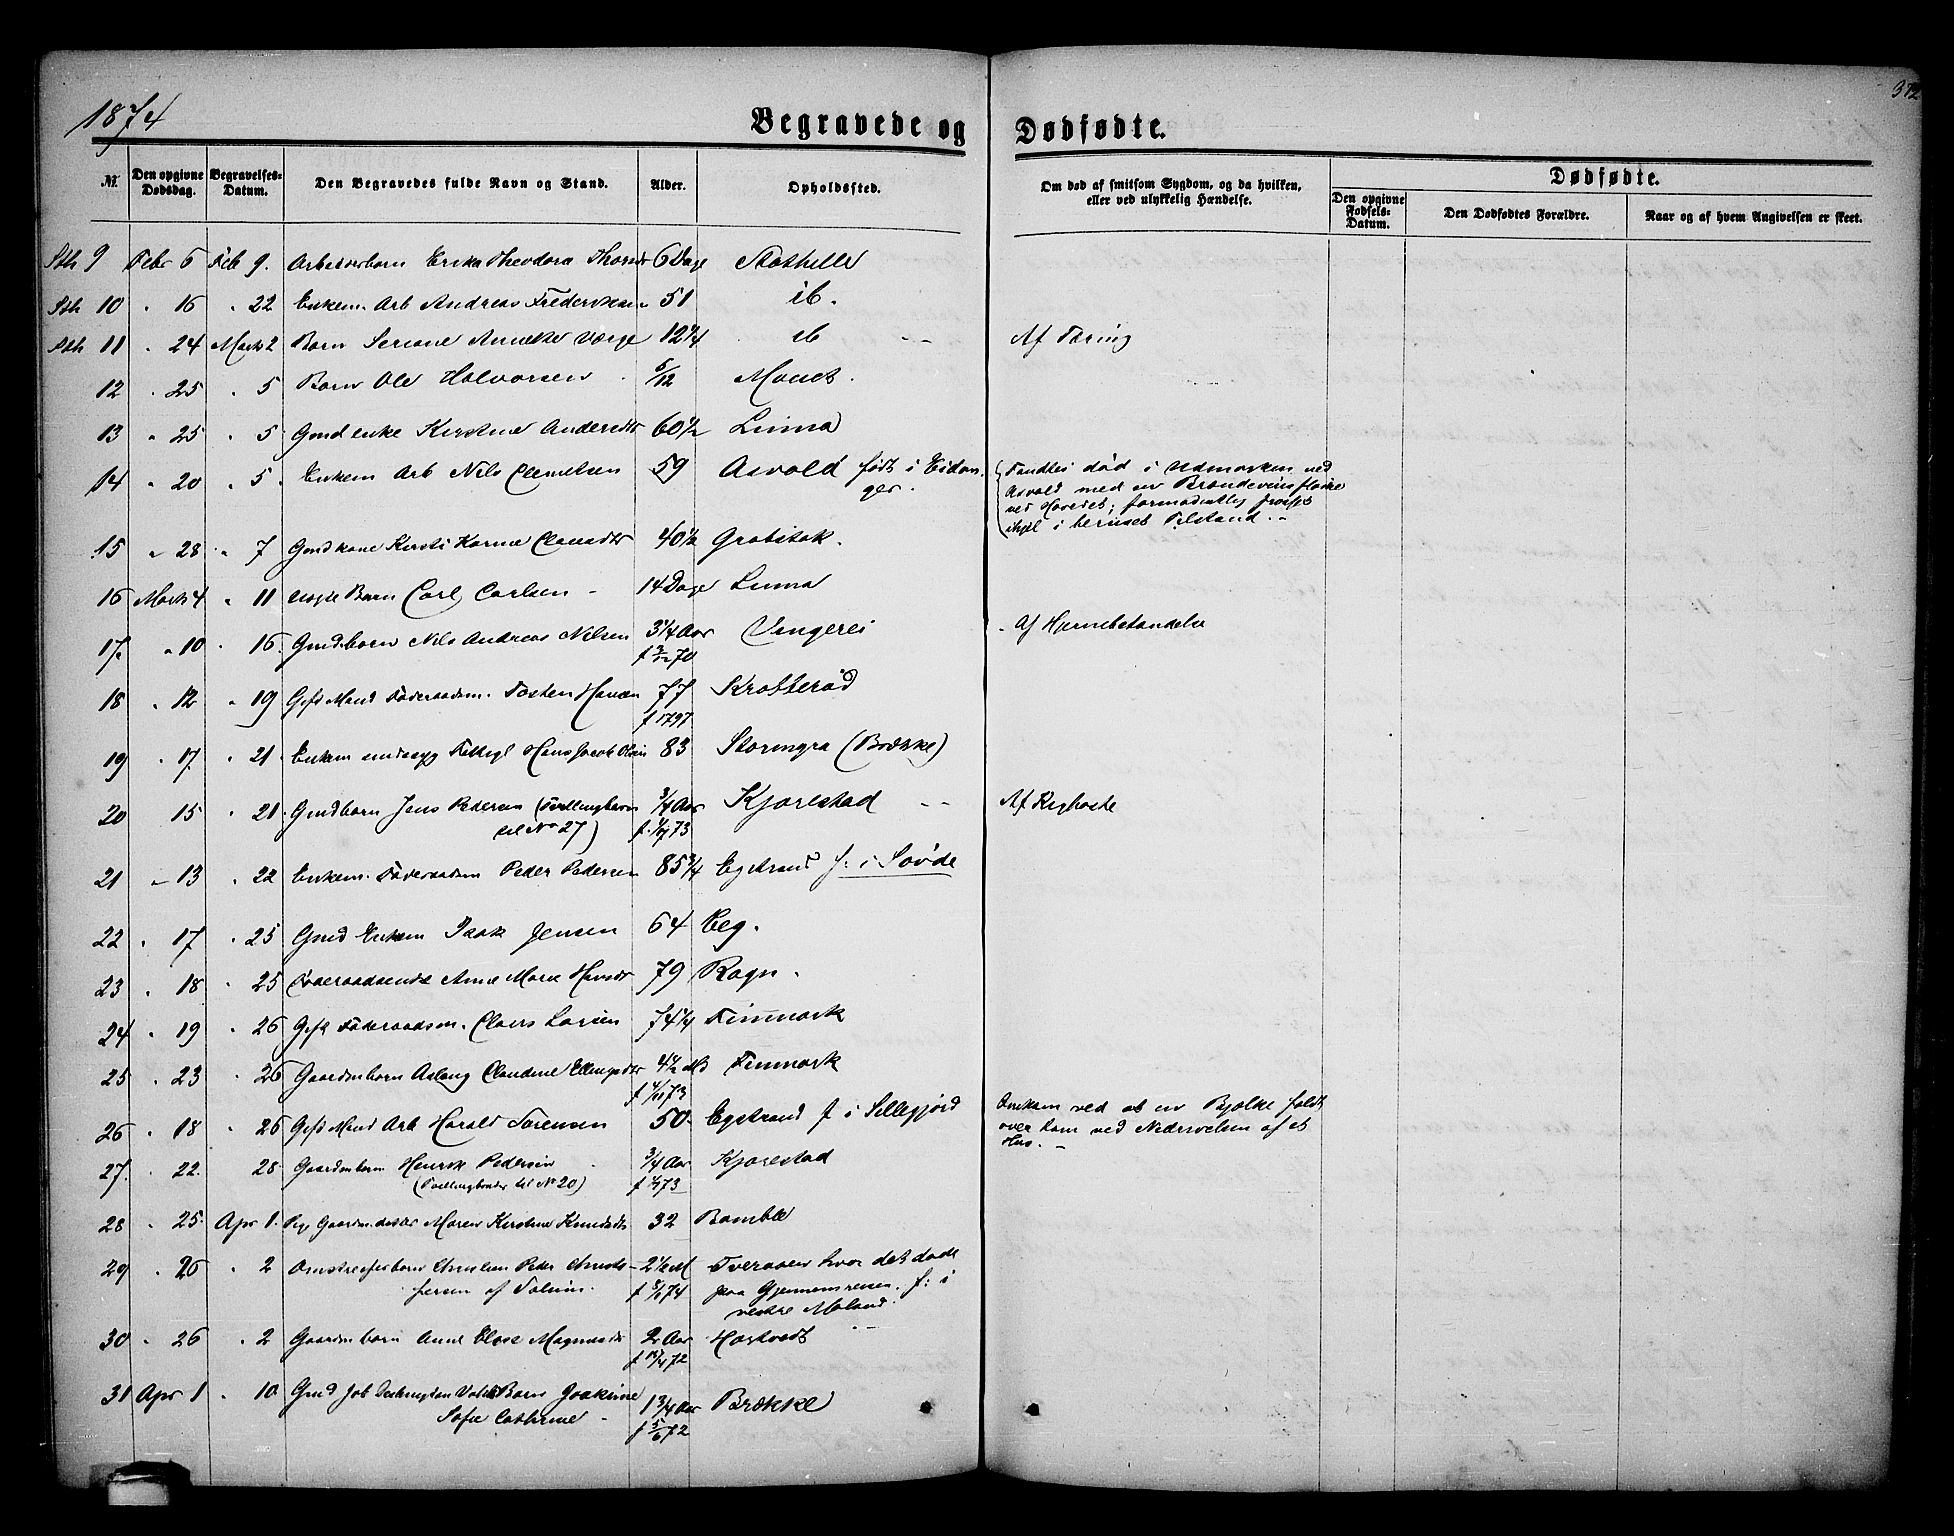 1874
372
Begravede og Dødfødte.
No. Den opgivne Dødsdag. Begravelses-Datum. Den Begravedes fulde Navn og Stand. Alder. Opholdssted. Om død af smitsom Sygdom, og da hvilken, eller ved ulykkelig Hændelse. Dødfødte. Den opgivne Fødsels-Datum. Den Dødfødtes Forældre. Naar og af hvem Angivelsen er skeet.
Sth 9 Febr 6 Feb 9. Arbeiderbarn Erika Theodora 6 Dage Stathelle
Sth 10 " 16 " 22 Enkem. Arb Andreas Frederiksen 51 ib.
Sth 11 " 24 Marts 2 Barn Seriane Værge 12 1/4 ib -- Af Tæring
12 " 25 " 5 Barn Ole Halvorsen 5/12
13 " 25 " 5 Gmd enke Kirstine Andersdtr 60 1/2 Linna
14 " 20 " 5 Enkem Arb Nils Clemetsen 59 Asvold født i Eidan-
ger.
Fandtes død i Udmarken ved
Asvold med en Brændevinsflaske
ved Hovedet; formodentlig frosset
ihjel i beruset Tilstand. -
15 " 28 " 7 Gmd kone Kirsti Karine Clausdtr 40 1/2 Grobstok.
16 Marts 4 " 11 uægte Barn Carl Carlsen - 14 Dage Linna
17. " 10 " 16. Gmdsbarn Nils Andreas Nilsen 3 1/4 Aar Vingerei - Af Hjernebetændelse
18 " 12 " 19 Gift Mand Føderaadsm. Tosten Hansen 77 Krotterød
f 1797
19 " 17. " 21 Enkem sindssyg Fattigl Hans Jacob Olsen 83 Stormyra (Brække)
20 15 " 21. Gmdbarn Jens Pedersen (Tvillingbarn 3/4 Aar Kjørestad -- Af Kighoste
til No 27)
21 " 13 " 22 Enkem. Føderaadsm Peder Pedersen 85 3/4 Egstrand f: i Søvde
22 " 17 " 25 Gmd Enkem Isak Jensen 64 Eeg.
23 " 18 " 25 Føderaadsenke Anne Marie Hansdtr 79 Rogn.
24 " 19 " 26 Gift Føderaadsm. Claus Larsen 74 1/4 Finmark
25 " 23 " 26 Gaardmbarn Aslaug Claudine Ellingsdtr 4 1/2 Md Finmark
26 " 18 " 26 Gift Mand Arb Harald Sørensen 50 Egstrand f i Sillegjord
Omkom ved at en Bjælke faldt
over ham ved Nedrivelsen af et
Hus. -
27. " 22. " 28. Gaardmbarn Henrik Pedersen 3/4 Aar Kjørestad
(Tvillingbroder til No 20)
28 " 25. Apr 1. Pige Gaardm.datter Maren Kirstine Knudsdtr 32 Bamble
29 " 26 " 2 Omstreiferbarn Christian Peder Christof- 2 1/2 M Tveraaen hvor det døde
fersen af f 8/1 74 paa Gjennemreisen. f: i
vestre Moland.
30 " 26 " 2 Gaardmbarn Anne Elise Magnusdtr 2 Aar Hastvedt
31 Apr 1 " 10. Gmd Job Barn Joakime 1 3/4 Aar Brække
Sofie Cathrine - f 5/6 72